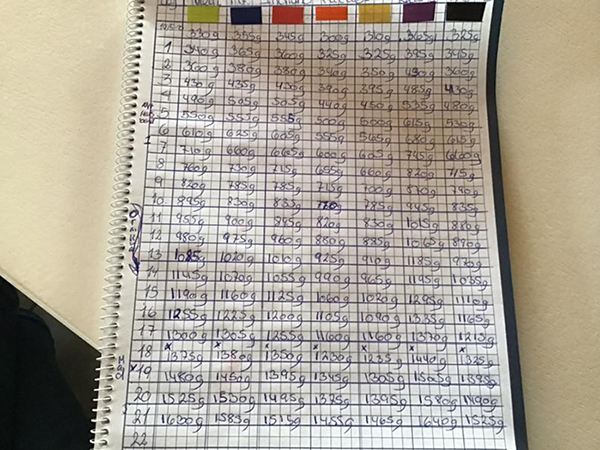 330g 355g 345g 300g 310g 365g 325g
1 340g 365g 360g 325g 325g 395g 345g
2 360g 380g 380g 340g 350g 430g 360g
3 430g 435g 430g 390g 395g 485g 430g
4 490g 505g 505g 440g 450g 535g 480g
5 550g 555g 555g 500g 500g 615g 530g
6 610g 625g 605g 555g 565g 680g 615g
7 710g 660g 665g 600g 605g 745g 660g
8 760g 730g 715g 655g 660g 820g 715g
9 820g 785g 785g 715g 700g 870g 790g
10 895g 830g 835g 770g 785g 945g 835g
11 955g 900g 895g 820g 830g 1015g 880g
12 980g 975g 960g 880g 885g 1065g 890g
13 1085g 1020g 1010g 925g 910g 1185g 970g
14 1145g 1070g 1055g 990g 965g 1195g 1035g
15 1190g 1160g 1125g 1060g 1020g 1295g 1110g
16 1255g 1225g 1200g 1105g 1090g 1325g 1165g
17 1300g 1305g 1255g 1160g 1160g 1370g 1210g
18 1375g 1380g 1350g 1230g 1235g 1440g 1325g
x19 1480g 1450g 1395g 1345g 1305g 1505g 1385g
20 1525g 1530g 1495g 1375g 1395g 1580g 1490g
21 1600g 1585g 1515g 1455g 1465g 1640g 1525g
22